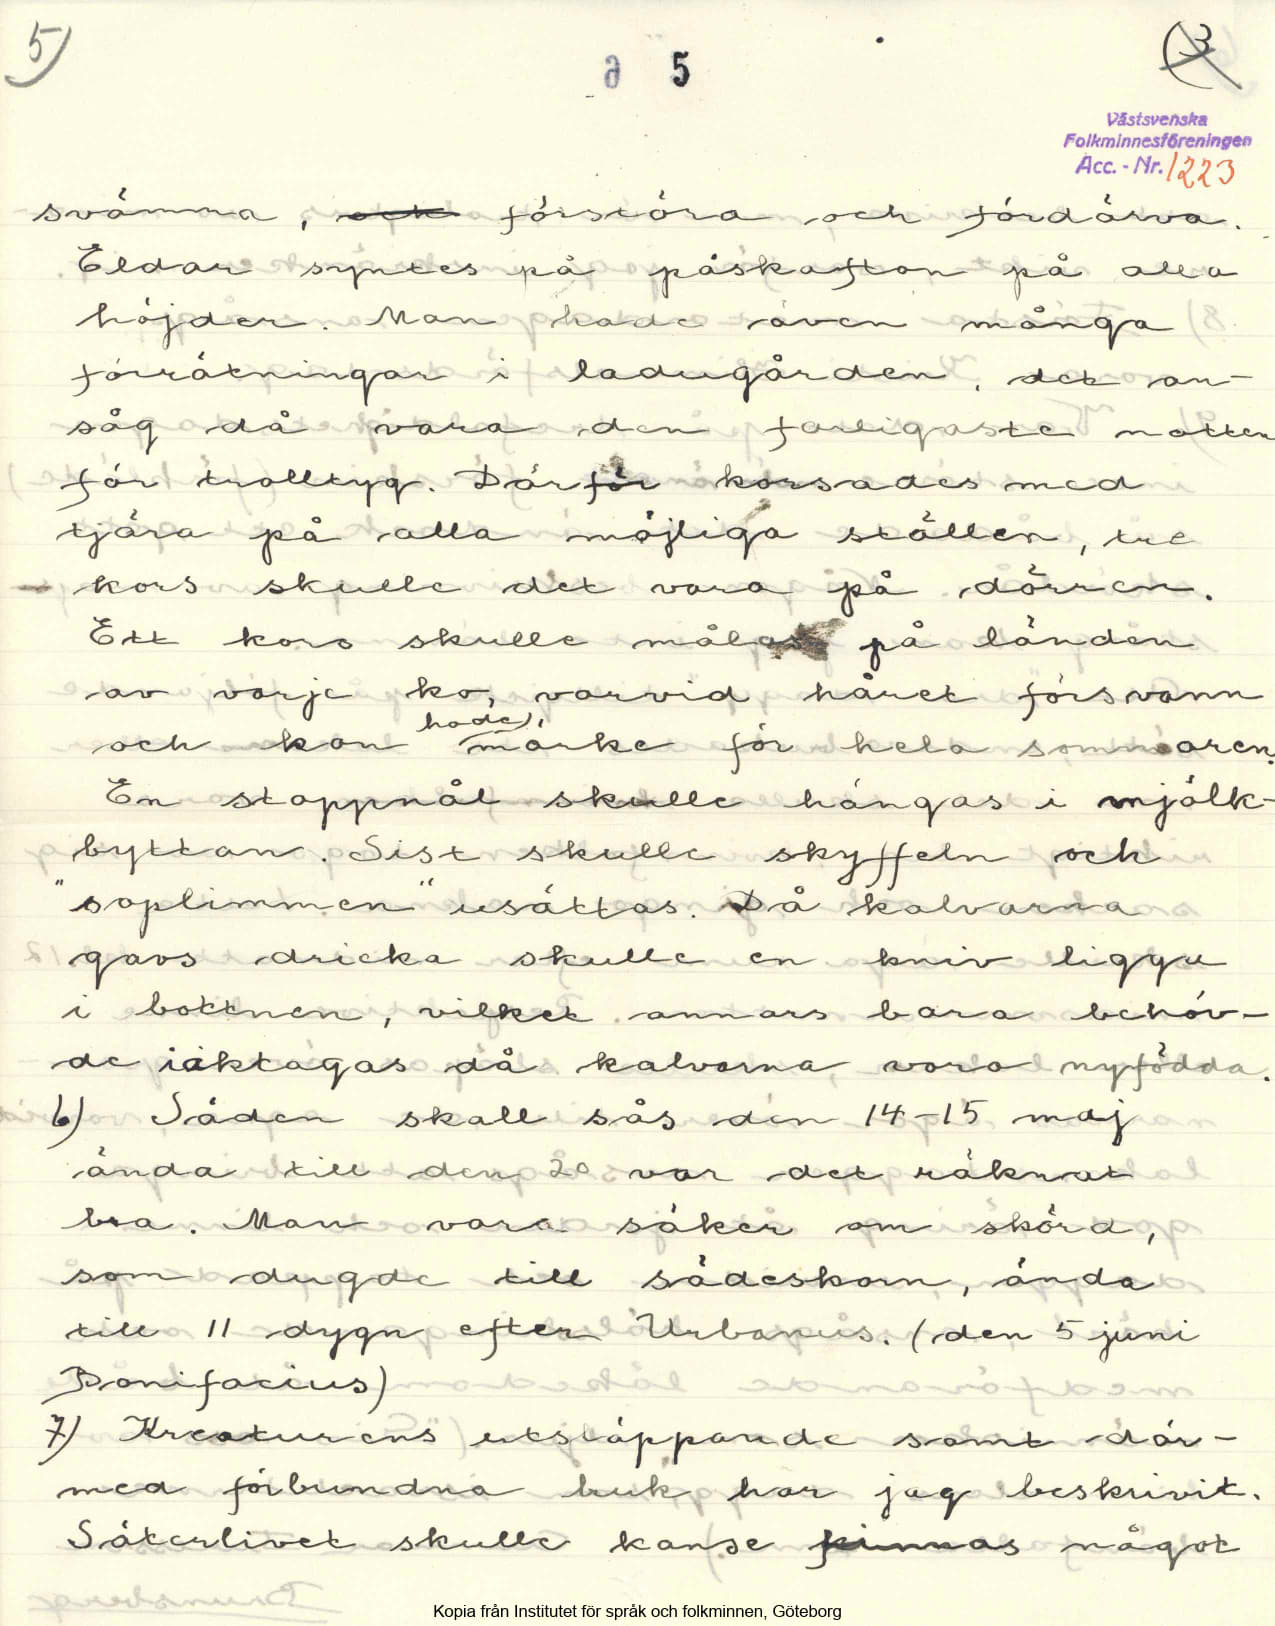 5)
6 5
3
Västsvenska
Folkminnesföreningen
Acc. - Nr. 1223
svämma, och förstöra och fördärva.
Eldar syntes på påskafton på alla
höjder. Man hade även många
förrätningar i ladugården, det an-
såg då vara den farligaste natten
för trolltyg. Därför korsades med
tjära på alla möjliga ställen, tre
kors skulle det vara på dörren.
Ett kors skulle målas på länden
av varje ko, varvid håret försvann
och kon hade märke för hela sommaren.
En stoppnål skulle hängas i mjölk-
byttan. Sist skulle skyffeln och
"soplimmen" usättas. Då kalvarna
gavs dricka skulle en kniv ligga
i bottnen, vilket annars bara behöv-
de iaktagas då kalvarna voro nyfödda.
6) Säden skall sås den 14-15 maj
ända till den 20 var det räknat
bra. Man vara säker om skörd,
som dugde till sädeskorn, ända
till 11 dygn efter Urbanus. (den 5 juni
Bonifacius)
7) Kreaturens utsläppande samt där-
med förbundna bruk har jag beskrivit.
Säterlivet skulle kanse finnas något
Kopia från Institutet för språk och folkminnen, Göteborg